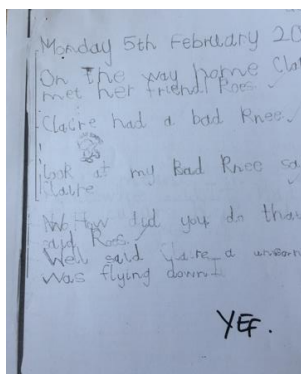 Monday 5th February 20
On The way home Cla
met her friend Roes
Claire had a bad Knee
look at my Bad Knee sa
Claire
No How did you do tha
said Roes
Well said Claire a
was flying down
YEF.